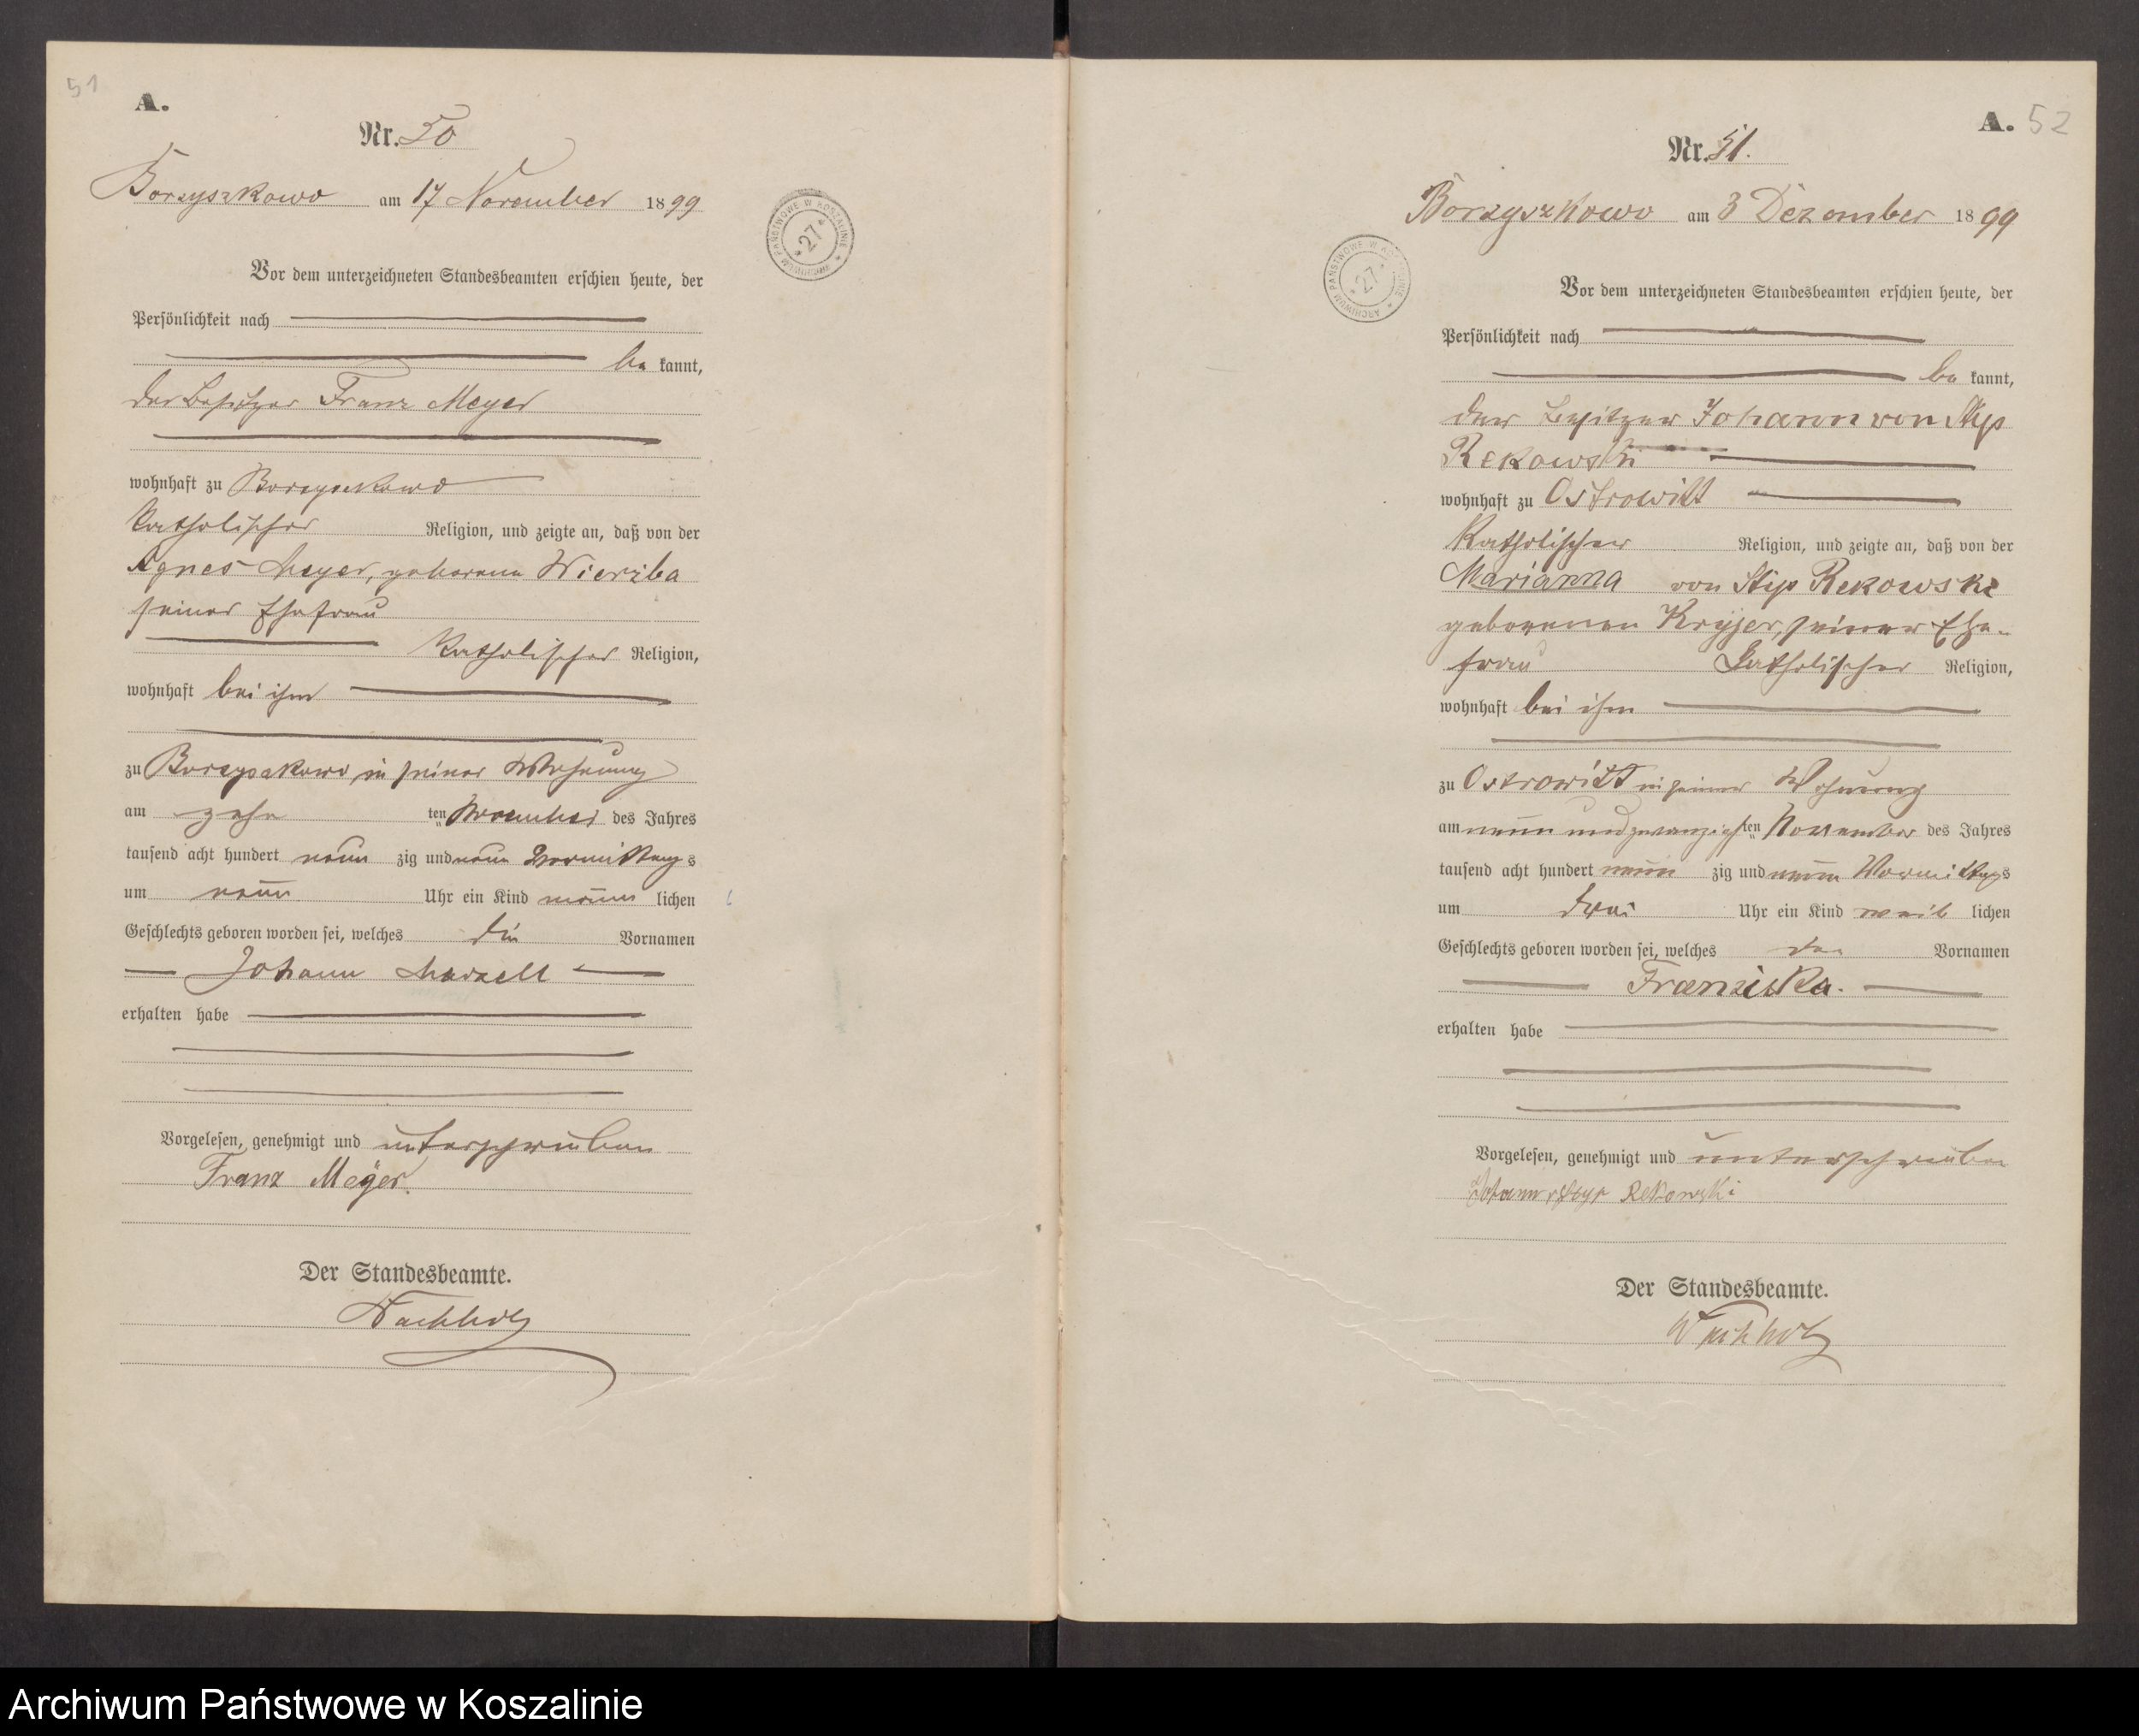 51
A.
Nr. 50
Borzyszkowo am 17 November 1899
ARCHIWUM PAŃSTWOWE W KOSZALINIE
* 27 *
Vor dem unterzeichneten Standesbeamten erschien heute, der
Persönlichkeit nach
be kannt,
der Besitzer Franz Meyer
wohnhaft zu Borzyszkowo
katholischer Religion, und zeigte an, daß von der
Agnes Meyer, geborene Wierzba
seiner Ehefrau
katholischer Religion,
wohnhaft bei ihm
zu Borzyszkowo, in seiner Wohnung
am zehn ten November des Jahres
tausend acht hundert neun zig und neun Vormittags
um neun Uhr ein Kind männ lichen
Geschlechts geboren worden sei, welches die Vornamen
Johann Marzell
erhalten habe
Vorgelesen, genehmigt und unterschrieben
Franz Meÿer.
Der Standesbeamte.
Wachholz
A. 52
Nr. 51.
Borzyszkowo am 3 Dezember 1899
ARCHIWUM PAŃSTWOWE W KOSZALINIE
* 27 *
Vor dem unterzeichneten Standesbeamten erschien heute, der
Persönlichkeit nach
be kannt,
der Besitzer Johann von Styp
Rekowski
wohnhaft zu Ostrowitt
katholischer Religion, und zeigte an, daß von der
Marianna von Styp Rekowski
geborenen Kryjer, seiner Ehe-
frau katholischer Religion,
wohnhaft bei ihm
zu Ostrowitt in seiner Wohnung
am neun und zwanzigsten November des Jahres
tausend acht hundert neun zig und neun Vormittags
um drei Uhr ein Kind weib lichen
Geschlechts geboren worden sei, welches den Vornamen
Franziska.
erhalten habe
Vorgelesen, genehmigt und unterschrieben
Johann v Styp Rekowski
Der Standesbeamte.
Wachholz
Archiwum Państwowe w Koszalinie